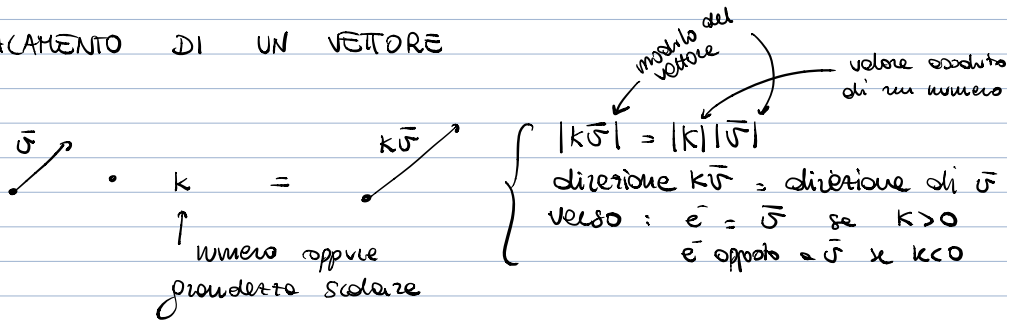 ALAMENTO DI UN VETTORE
modulo del
vettore
valore assoluto
di un numero
v̄ · k = kv̄
numero oppure
grandezza scalare
|kv̄| = |k||v̄|
direzione kv̄ = direzione di v̄
verso : è = v̄ se k>0
è opposto a v̄ se k<0